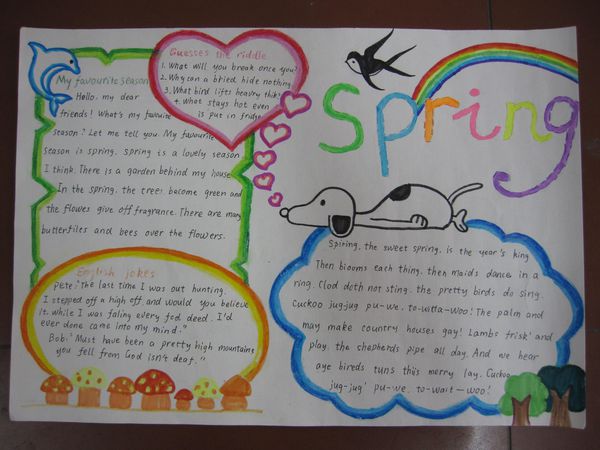 My favourite season
Hello, my dear
friends! What's my favourite
season? Let me tell you. My favourite
season is spring. spring is a lovely season
I think. There is a garden behind my house
In the spring, the trees bacome green and
the flowes give off fragrance. There are many
butterfiles and bees over the flowers.
Guesses the riddle
1. What will you break once you?
2. Why con a bried hide nothing
3. What bind lifts heavry thik?
4. What stays hot even
is put in fridge
Spring
English jokes
Pete: "The last time I was out hunting.
I stepped off a high off and would you believe
it. while I was faling every fed deed. I'd
ever done came into my mind."
Bobi: "Must have been a pretty high mountaine
you fell from God isn't deaf."
Spiring, the sweet spring, is the year's king
Then biooms each thing, then maids dance in a
ring. Clod doth not sting. the pretty birds do sing.
Cuckoo jug-jug pu-we, to-witta-woo! The palm and
may make country houses gay! Lambs frisk' and
play. the shepherds pipe all day. And we hear
aye bireds tuns this merry lay. Cuckoo.
jug-jug' pu-we, to-wait-woo!